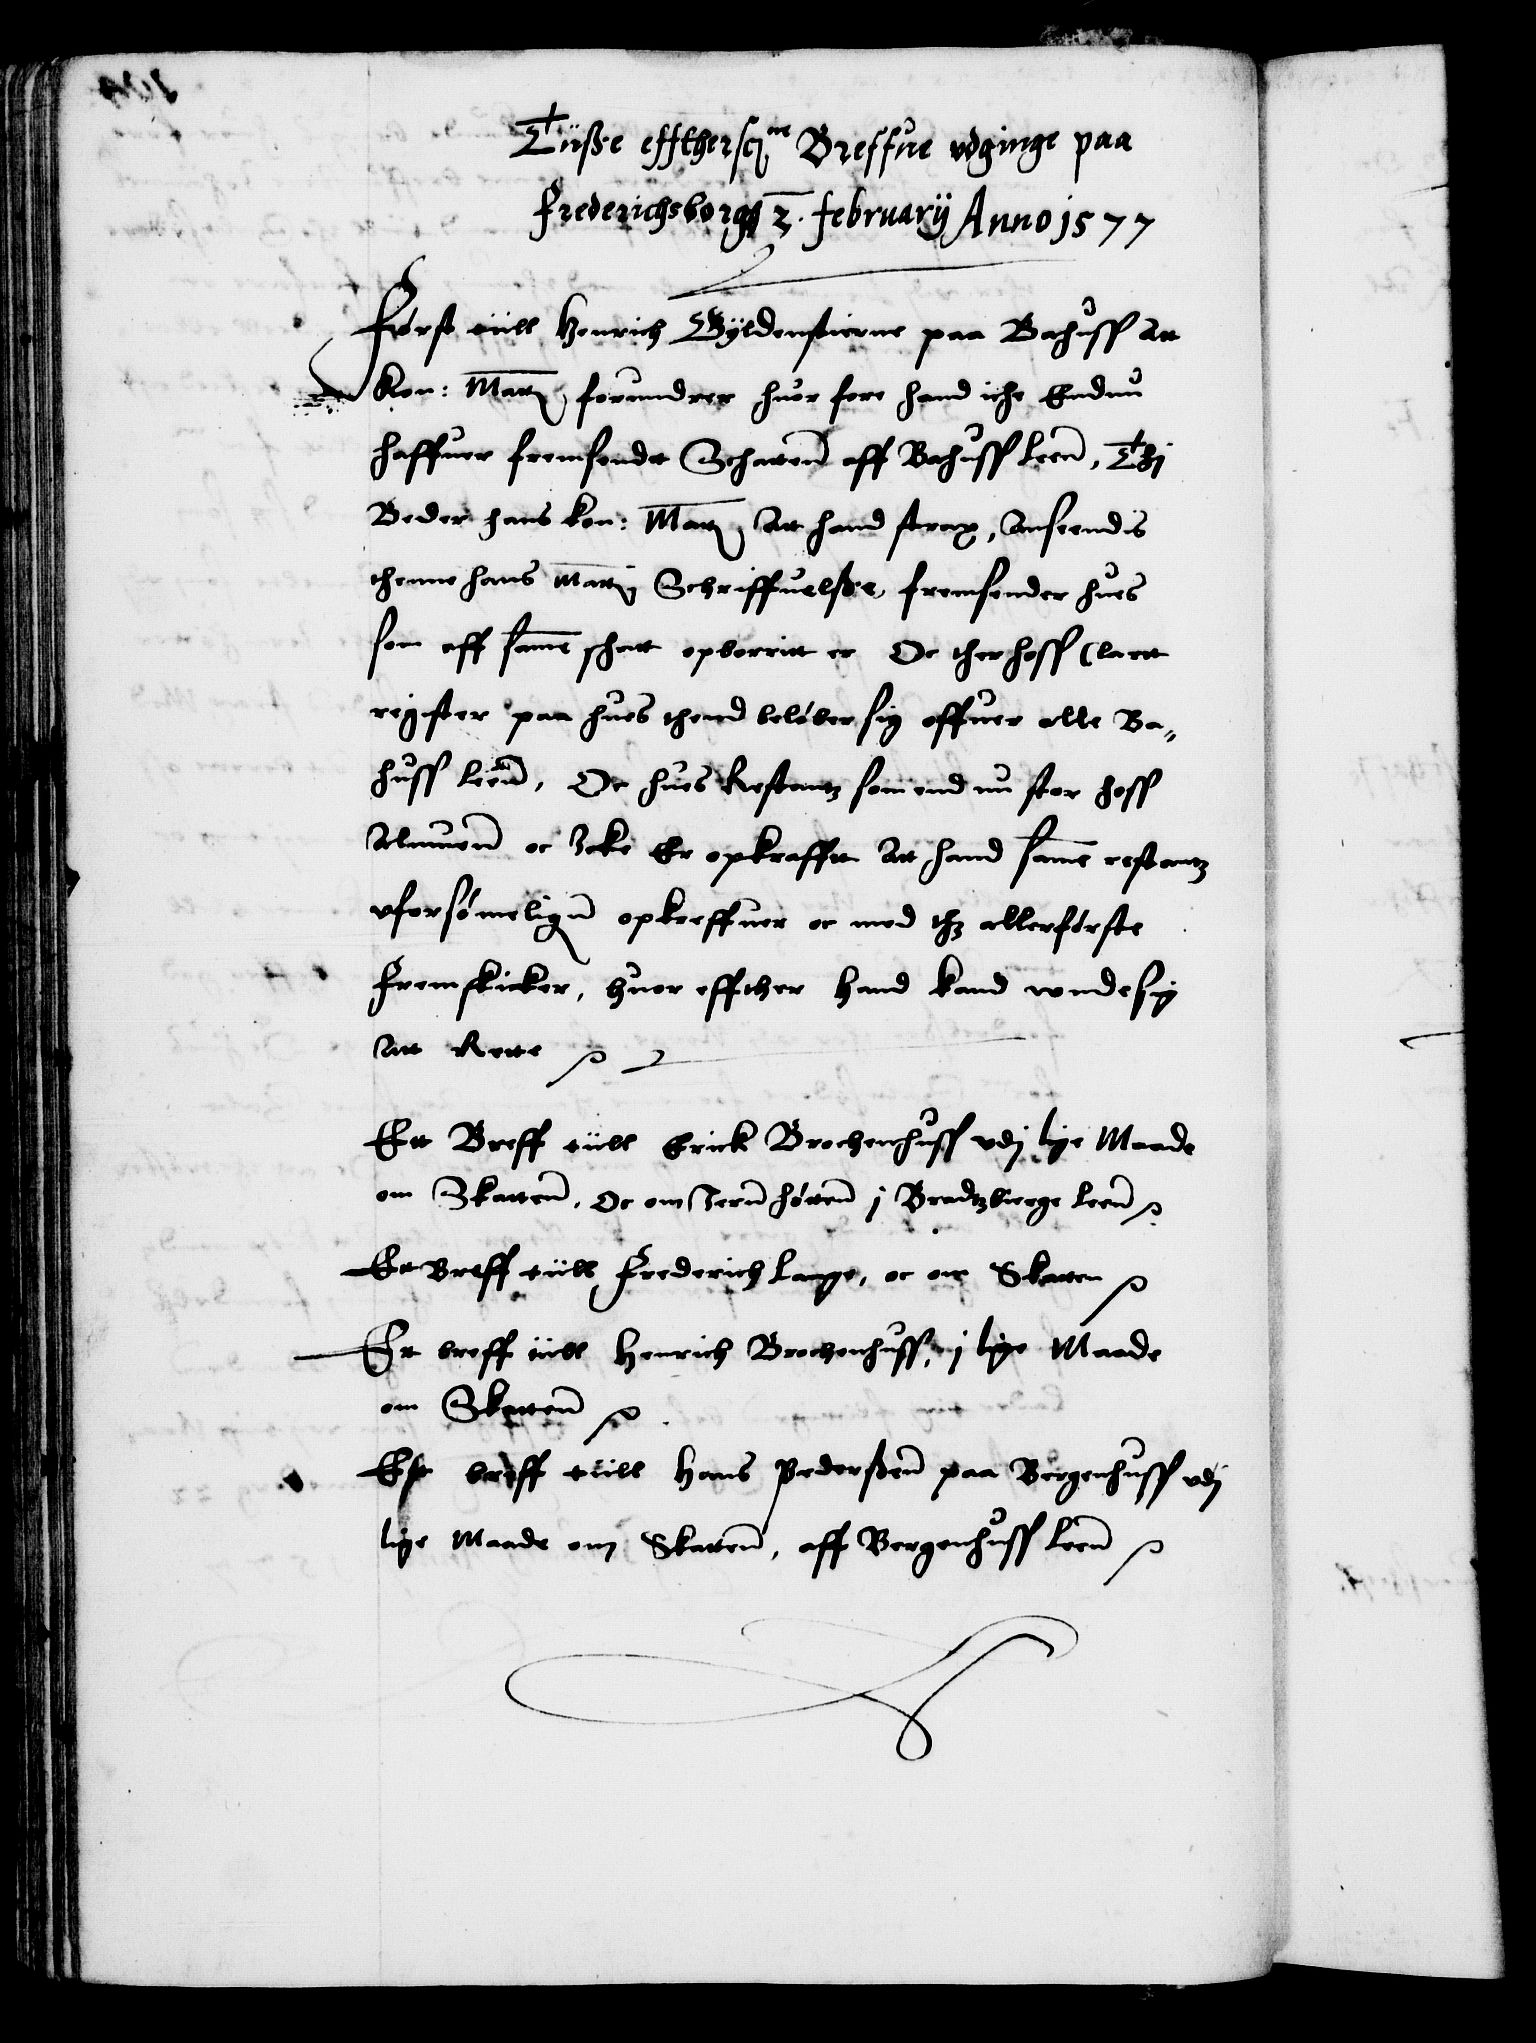 Tüsse effthersc^ne Breffue vdginge paa
Frederichsborgh 2. february Anno 1577
Først tüll Henrich Gÿldenstierne paa Bahuss Att
Kon: Matt forundrer huor fore hand iche Endnu
haffuer fremsendt Schatten aff Bahuss leen, Thi
Beder hans kon: Matt Att hand strax, Anseendis
thenne hans Matt Schriffuelsse, fremsender hues
som aff same schatt opborritt er Oc ther hoss Clartt
register paa hues thend beløber sig offuer alle Ba„
huss leen, Oc hues Restantz som end nu stor hoss
Almuen oc Icke Er opkrafftt Att hand same restantz
vforsømeligen opkreffuer oc med thz allerførste
Fremskicker, huor effther Hand kand wiide sig
Att Rette
Ett Breff tüll Erick Brochenhuss vdj lige Maade
om Skatten, Oc om Jern høtten j Bradtzbierge leen
Ett Breff tüll Frederich Lange, oc om Skatten
Ett breff tüll Henrich Brochenhuss, j lige Maade
om Skatten
Ett breff tüll Hans Pederssen paa Bergenhuss vdj
lige Maade om Skatten, aff Bergenhuss leen